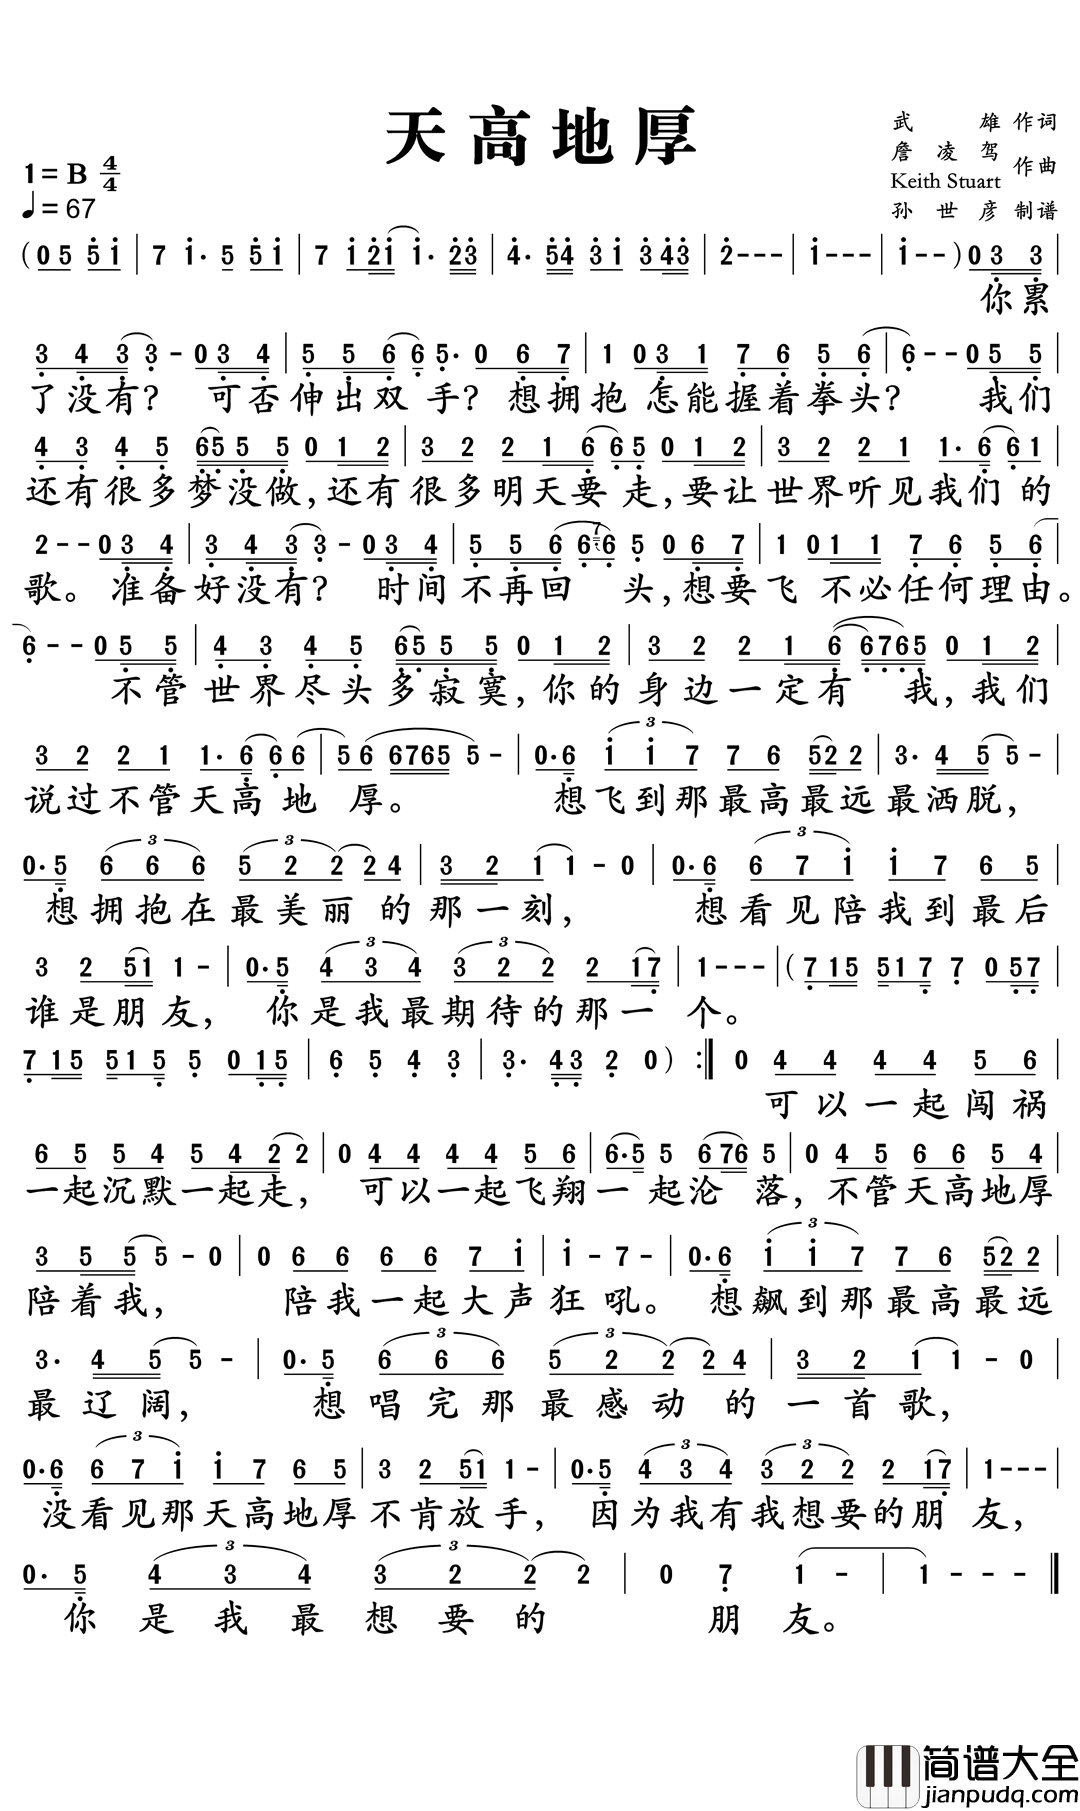 天高地厚
武雄作词
詹凌驾
Keith Stuart 作曲
孙世彦制谱
1=B 4/4
♩=67
(0 5 5 i | 7 i· 5 5 i | 7 i 2 i i· 2 3 | 4· 5 4 3 i 3 4 3 | 2 - - - | i - - - | i - - ) 0 3 3 |
你累
3 4 3 3 - 0 3 4 | 5 5 6 6 5· 0 6 7 | 1 0 3 1 7 6 5 6 | 6 - - 0 5 5 |
了没有? 可否伸出双手? 想拥抱怎能握着拳头? 我们
4 3 4 5 6 5 5 5 0 1 2 | 3 2 2 1 6 6 5 0 1 2 | 3 2 2 1 1· 6 6 1 |
还有很多梦没做,还有很多明天要走,要让世界听见我们的
2 - - 0 3 4 | 3 4 3 3 - 0 3 4 | 5 5 6 6 7 6 5 0 6 7 | 1 0 1 1 7 6 5 6 |
歌。准备好没有? 时间不再回头,想要飞不必任何理由。
6 - - 0 5 5 | 4 3 4 5 6 5 5 5 0 1 2 | 3 2 2 1 6 6 7 6 5 0 1 2 |
不管世界尽头多寂寞,你的身边一定有我,我们
3 2 2 1 1· 6 6 6 | 5 6 6 7 6 5 5 - | 0· 6 i i 7 7 6 5 2 2 | 3· 4 5 5 - |
说过不管天高地厚。 想飞到那最高最远最洒脱,
0· 5 6 6 6 5 2 2 2 4 | 3 2 1 1 - 0 | 0· 6 6 7 i i 7 6 5 |
想拥抱在最美丽的那一刻, 想看见陪我到最后
3 2 5 1 1 - | 0· 5 4 3 4 3 2 2 2 1 7 | 1 - - - | (7 1 5 5 1 7 7 0 5 7 |
谁是朋友, 你是我最期待的那一个。
7 1 5 5 1 5 5 0 1 5 | 6 5 4 3 | 3· 4 3 2 0) :| 0 4 4 4 4 5 6 |
可以一起闯祸
6 5 5 4 5 4 2 2 | 0 4 4 4 4 5 6 | 6· 5 5 6 7 6 5 | 0 4 5 6 6 5 4 |
一起沉默一起走, 可以一起飞翔一起沦落,不管天高地厚
3 5 5 5 - 0 | 0 6 6 6 6 7 i | i - 7 - | 0· 6 i i 7 7 6 5 2 2 |
陪着我, 陪我一起大声狂吼。 想飙到那最高最远
3· 4 5 5 - | 0· 5 6 6 6 5 2 2 2 4 | 3 2 1 1 - 0 |
最辽阔, 想唱完那最感动的一首歌,
0· 6 6 7 i i 7 6 5 | 3 2 5 1 1 - | 0· 5 4 3 4 3 2 2 2 1 7 | 1 - - - |
没看见那天高地厚不肯放手, 因为我有我想要的朋友,
0· 5 4 3 4 3 2 2 2 | 0 7 1 - | 1 - - - ‖
你是我最想要的 朋友。
简谱大全
jianpudq.com